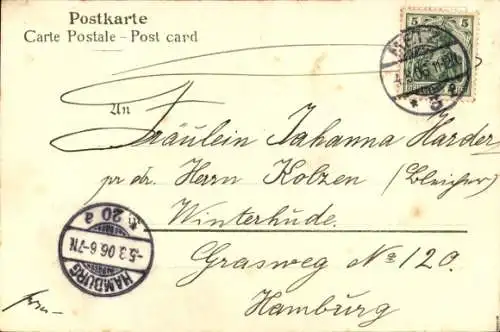 Postkarte
Carte Postale – Post card
5 5
METZ
An
Fräulein Johanna Harder,
pr adr. Herrn Kolzen (Bleicher)
Winterhude.
Grasweg No 120.
Hamburg
HAMBURG
-5.3.06.6-7N.
* 20 a